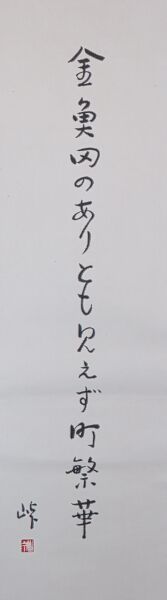 金魚田のありとも見えず町繁華
峠